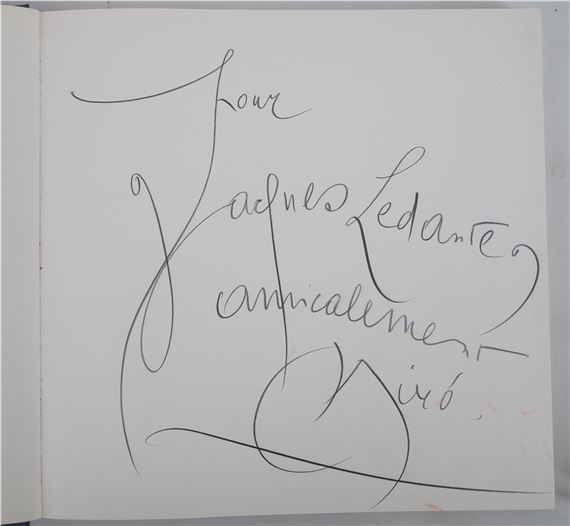 Pour
Jaques Ledante,
amicalement
Miró.